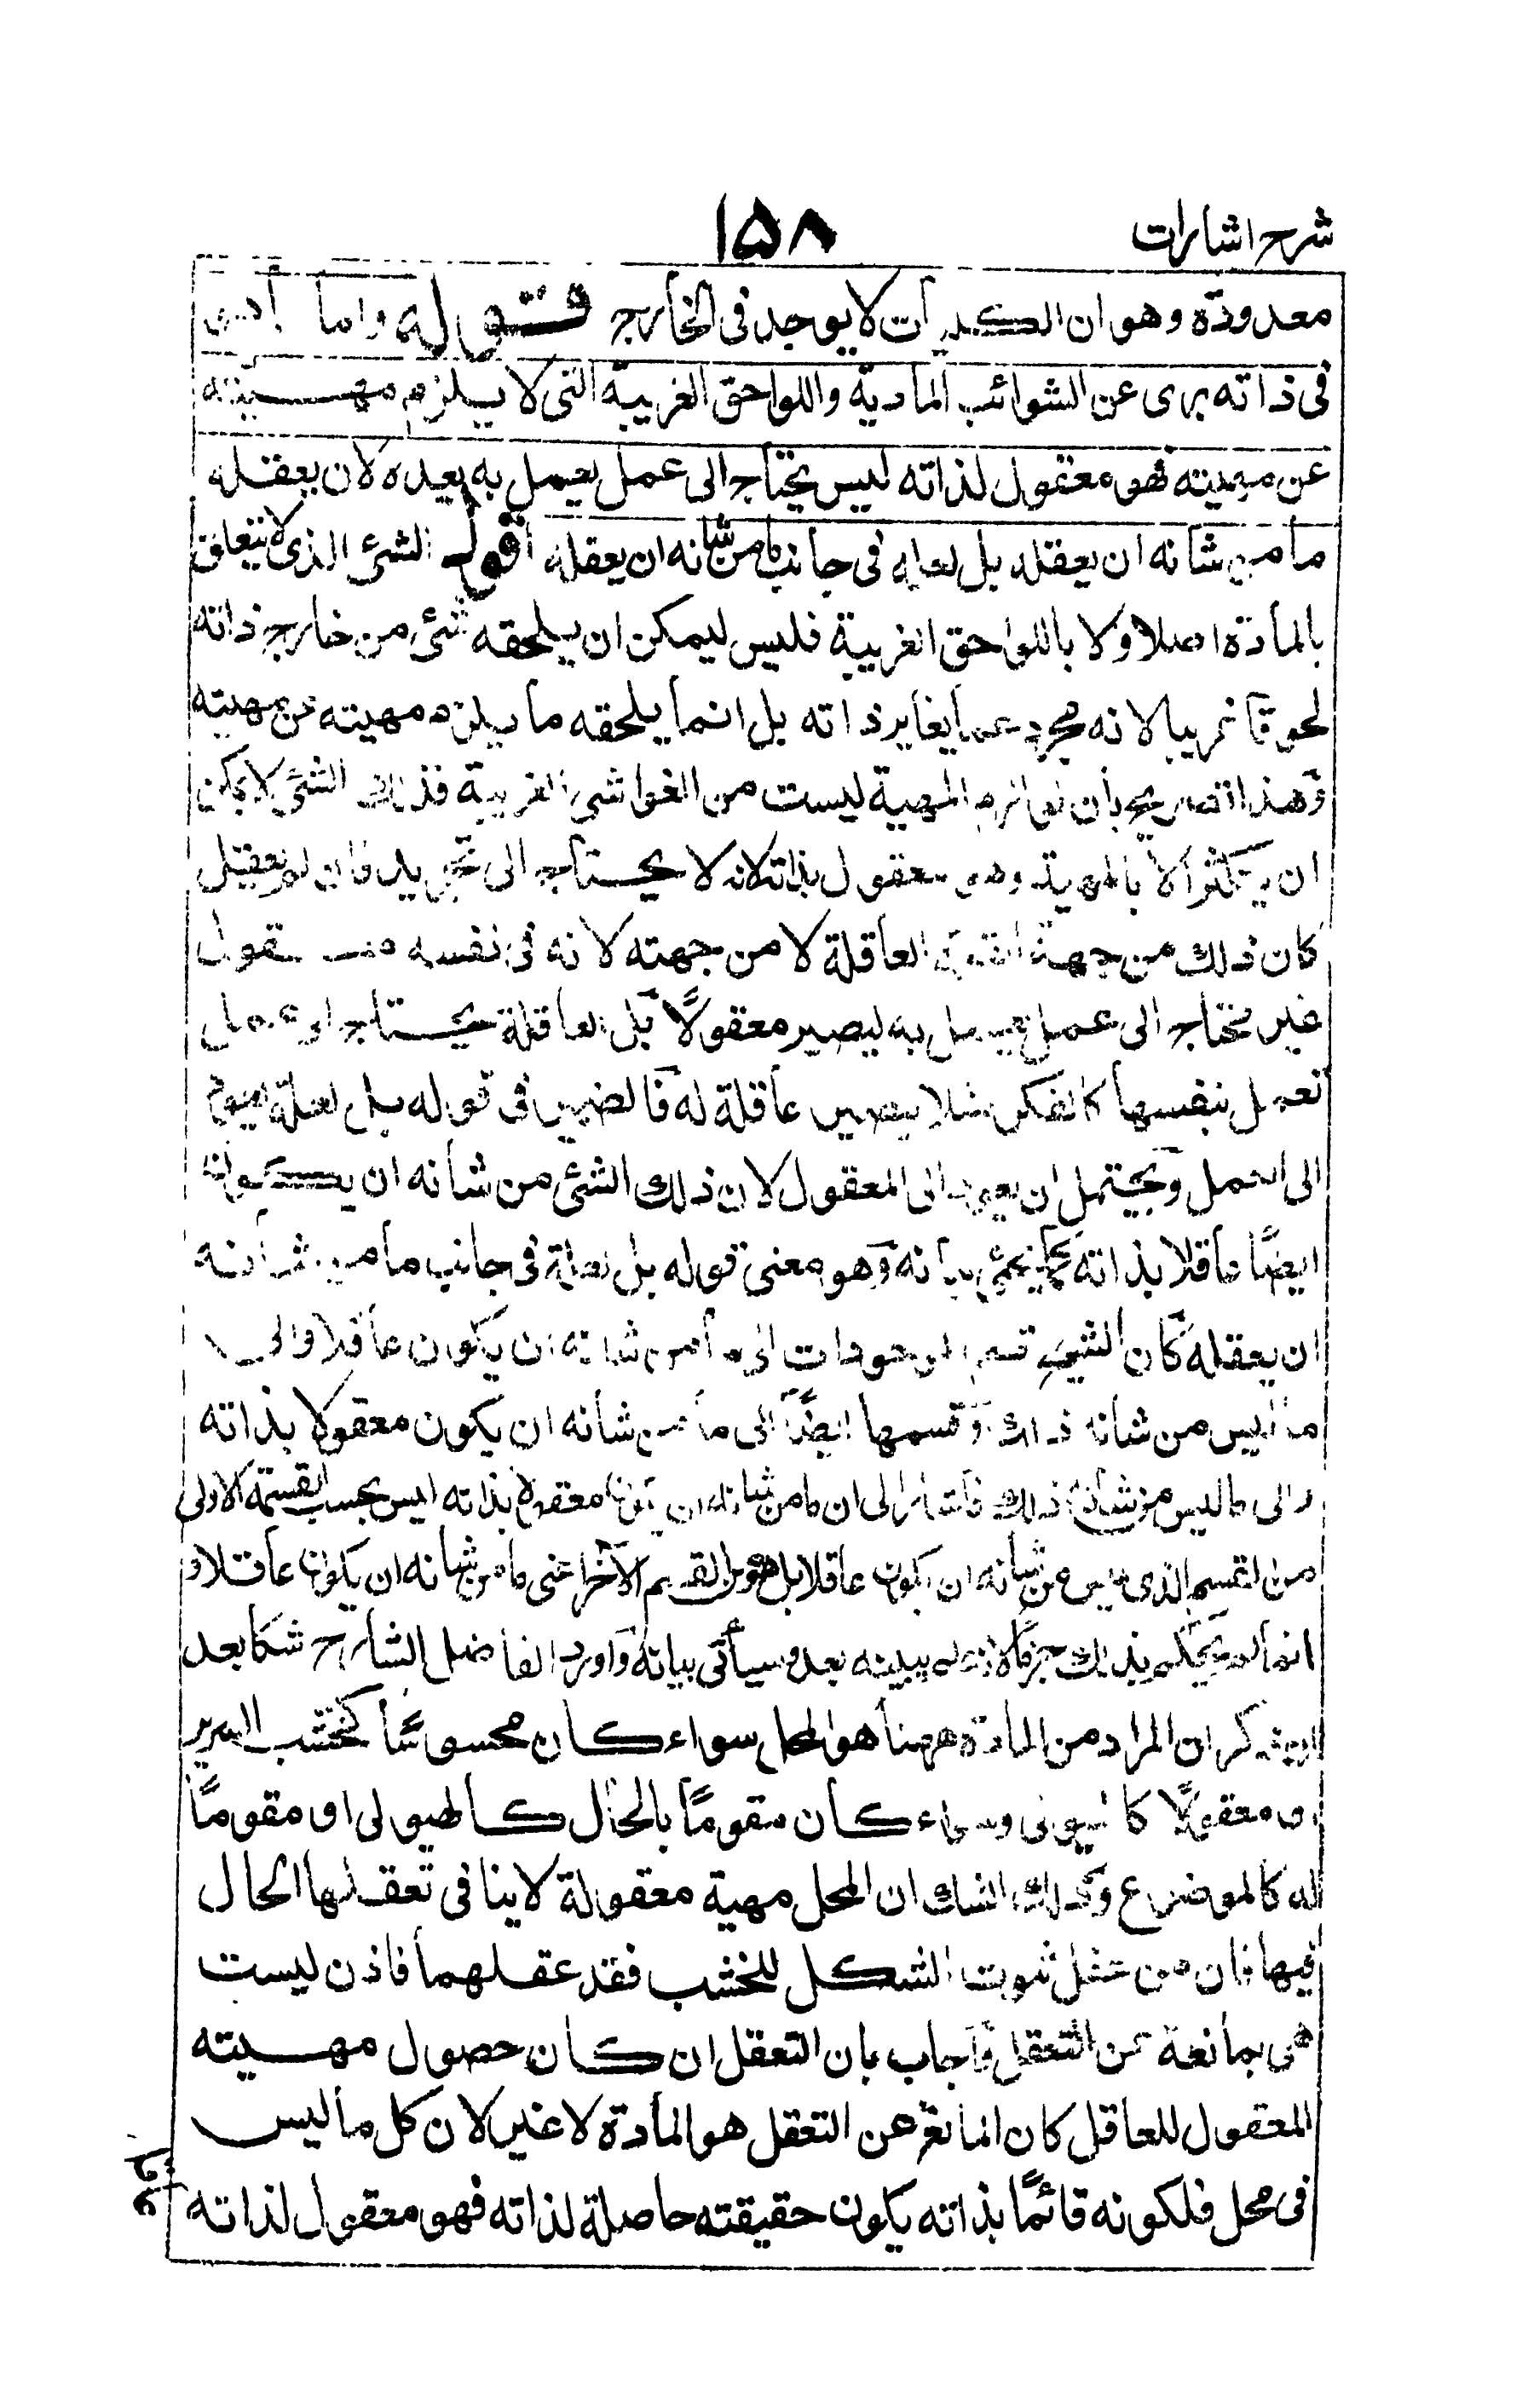 شرح اشارات
١٥٨
معدودة وهو ان الكليات لا يوجد فى الخارج قوله واما
فى ذاته برى عن الشوائب المادية واللواحق الغريبة التى لا يلزم مهيته
عن مهيته فهو معقول لذاته ليس يحتاج الى عمل يعمل به بعده لان يعقله
ما من شانه ان يعقله بل لعله فى جانب ما من شانه ان يعقله اقول الشئ الذى لا يتعلق
بالمادة اصلا ولا باللواحق الغريبة فليس ليمكن ان يلحقه شئ من خارج ذاته
لحوقا غريبا لانه مجرد عما يغاير ذاته بل انما يلحقه ما يلزم مهيته عن مهيته
وهذا تصريح بان لوازم المهية ليست من الغواشى الغريبة فذلك الشئ لا يمكن
ان يتكثر الا بالمهية وهو معقول بذاته لانه لا يحتاج الى تجريد فان لم يعقل
كان ذلك من جهة القوة العاقلة لا من جهته لانه فى نفسه معقول
غير محتاج الى عمل يعمل به ليصير معقولًا بل العاقلة يحتاج الى عمل
تعمل بنفسها كالفكر مثلا ليصير عاقلة له فالضمير فى قوله بل لعله يعود
الى العمل ويحتمل ان يعود الى المعقول لان ذلك الشئ من شانه ان يكون
ايضًا عاقلا بذاته كما يجئ بيانه وهو معنى قوله بل لعله فى جانب ما من شانه
ان يعقله كان الشيخ قسم الموجودات الى ما من شانه ان يكون عاقلا والى
ما ليس من شانه ذلك وقسمها ايضًا الى ما من شانه ان يكون معقولا بذاته
والى ما ليس من شانه ذلك فاشار الى ان ما من شانه ان يكون معقولا بذاته ليس بحسب القسمة الاولى
من القسم الذى ليس من شانه ان يكون عاقلا بل هو من القسم الآخر اعنى ما من شانه ان يكون عاقلا و
انما لم يحكم بذلك جزما لانه لم يبينه بعد وسيأتى بيانه واورد الفاضل الشارح شكا بعد
ان ذكر ان المراد من المادة ههنا هو المحل سواء كان محسوسًا كخشب السرير
او معقولًا كالهيولى وسواء كان متقومًا بالحال كالهيولى او مقومًا
له كالموضوع وذلك الشك ان المحل مهية معقولة لا ينافى تعقلها الحال
فيها فان من عقل ثبوت الشكل للخشب فقد عقلهما فاذن ليست
هى بمانعة عن التعقل واجاب بان التعقل ان كان حصول مهيته
المعقول للعاقل كان المانع عن التعقل هو المادة لا غير لان كل ما ليس
فى محل فلكونه قائمًا بذاته يكون حقيقته حاصلة لذاته فهو معقول لذاته